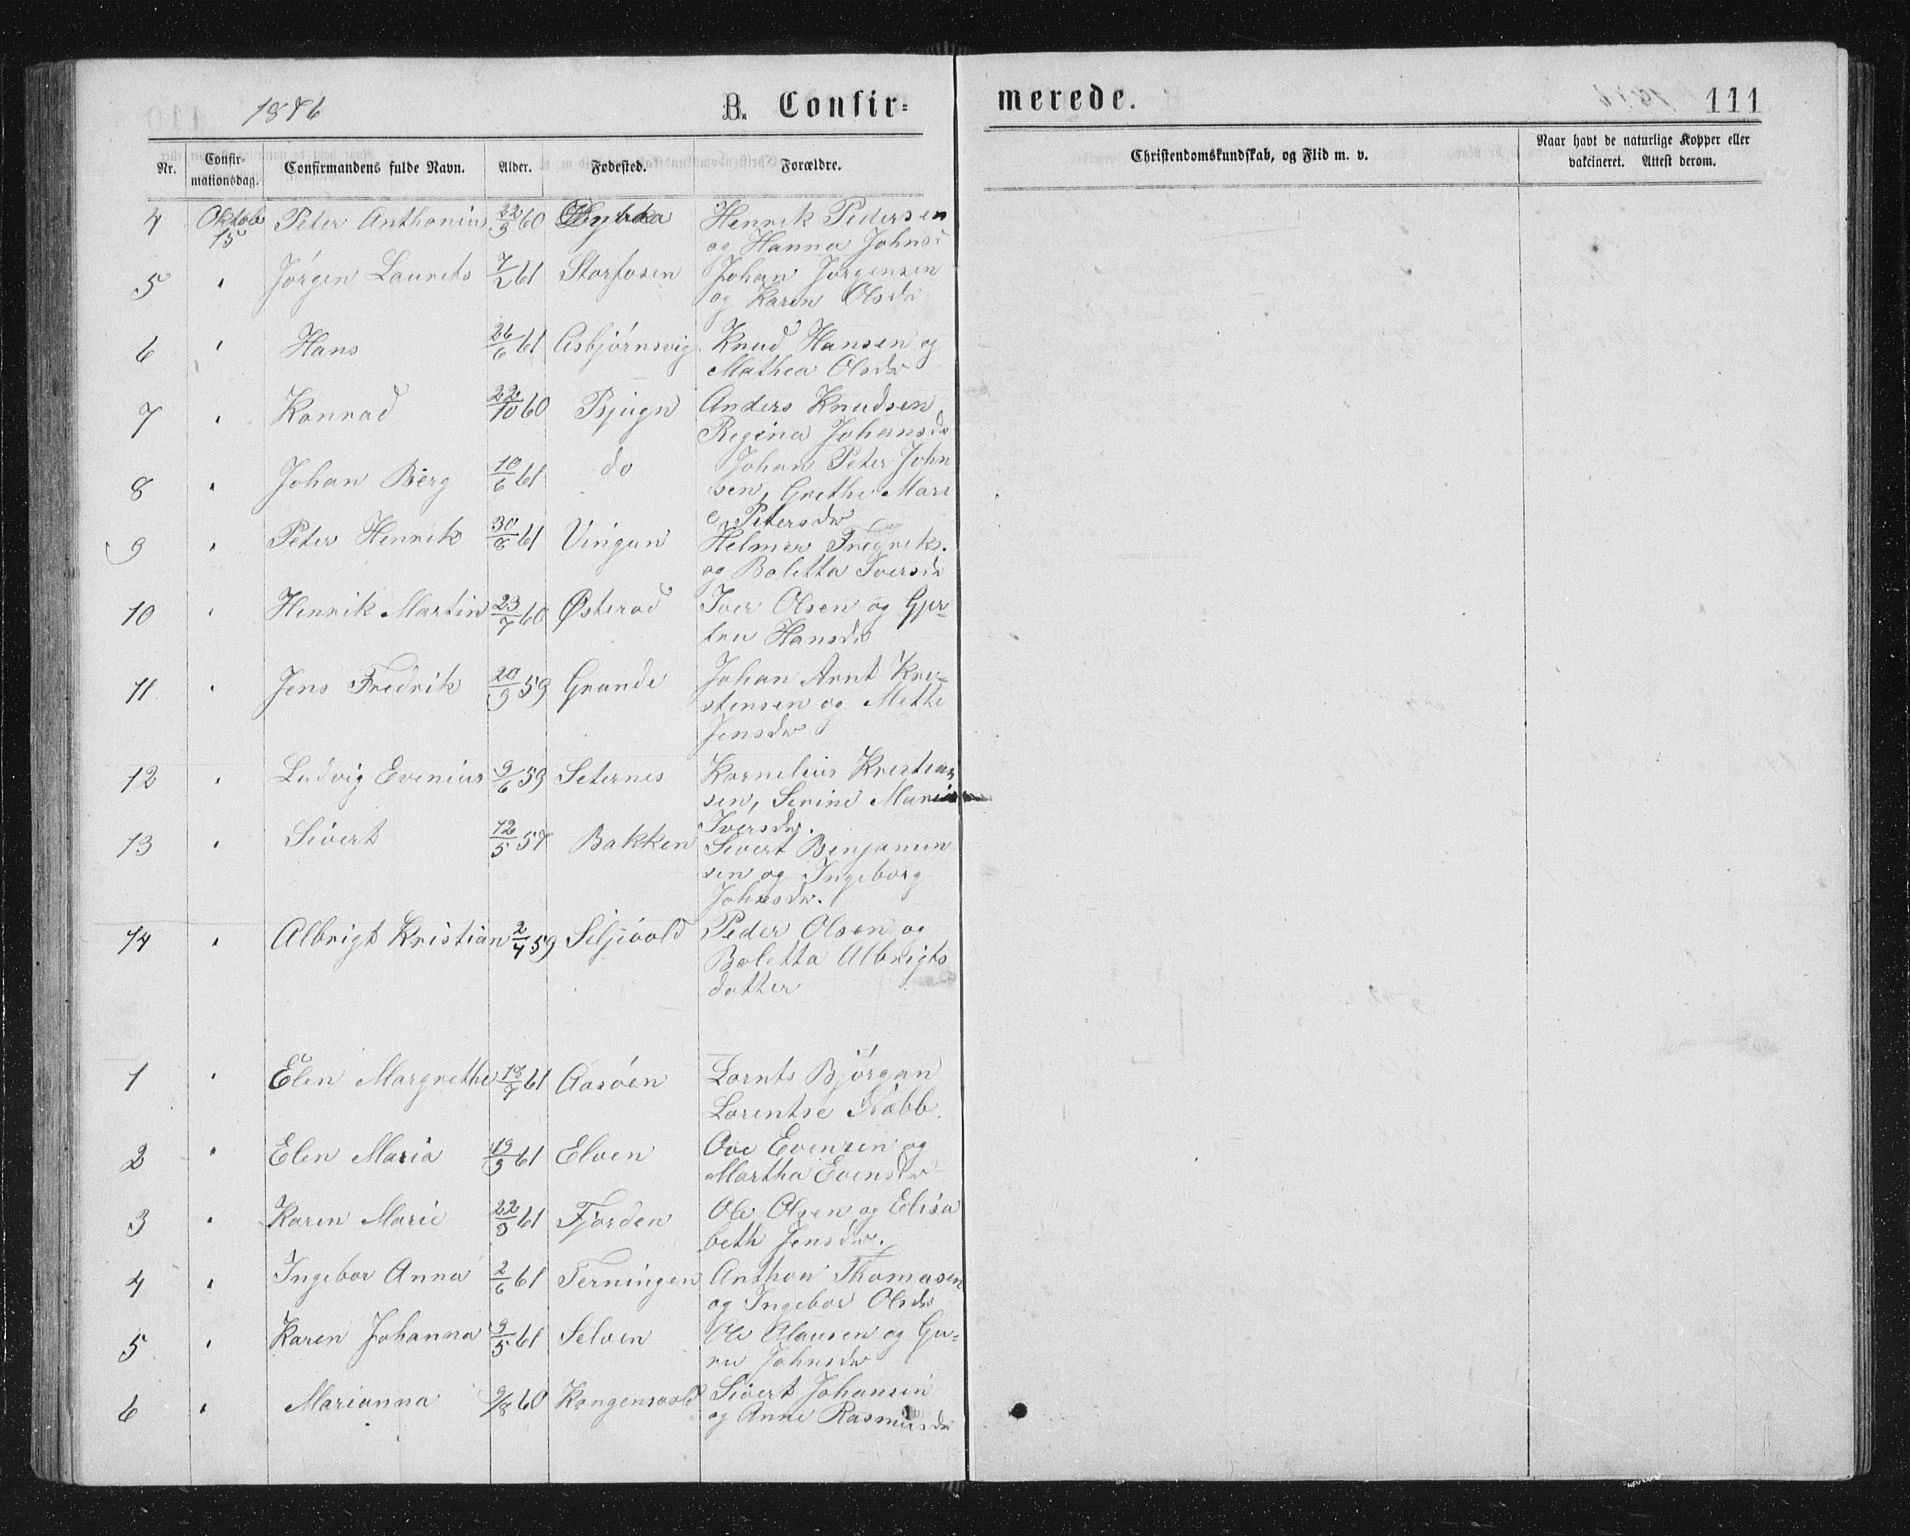 1876 B. Confirmerede. 1876 111
Nr. Confirmationsdag. Confirmandens fulde Navn. Alder. Fødested. Forældre. Christendomskundskab, og Flid m. v. Naar havt de naturlige Kopper eller vakcineret. Attest derom.
4 Oktob 15 Peter Anthonius 22/9 60 Henrik Pedersen
og Hanna Johns
5 " Jørgen Laurits 7/2 61 Storfosen Johan Jørgensen
og Karen Olsdr
6 " Hans 26/6 61 Asbjørnsvig Knud Hansen og
Mathea Olsdr
7 " Konrad 22/10 60 Bjugn Anders Knudsen
Regina Johansdr
8 " Johan Berg 10/6 61 do Johan Peter John
sen, Grethe Mari
e Petersdr
9 " Peter Henrik 30/8 61 Vingan Helmer Fredriks.
og Boletta Iversdr
10 " Henrik Martin 23/7 60 Østeraad Iver Olsen og Gjer-
tru Hansdr
11 " Jens Fredrik 20/9 59 Grande Johan Arnt Kri-
stensen og Methe
Jensdr
12 " Ludvig Evenius 9/6 59 Seternes Kornelius Kristian
sen, Serine Maria
Iversdr.
13 " Sivert 12/5 57 Bakken Sivert Benjamin
sen og Ingeborg
Johnsdr.
14 " Albrigt Kristian 2/4 59 Siljevold Peder Olsen og
Boletta Albrigts
datter
1 " Elen Margrethe 18/7 61 Aasøen Lornts Bjørgan
Lorentse
2 " Elen Maria 19/9 61 Elven Ove Evensen og
Martha Evensdr
3 " Karen Marie 22/9 61 Fjorden Ole Olsen og Elisa
beth Jensdr.
4 " Ingebor Anna 2/6 61 Terningen Anthon Thomasen
og Ingebor Olsdr
5 " Karen Johanna 9/5 61 Selven Ole Clausen og Gu-
ru Johnsdr
6 " Marianna 9/8 60 Kongensvold Sivert Johansen
og Anne Rasmusdr